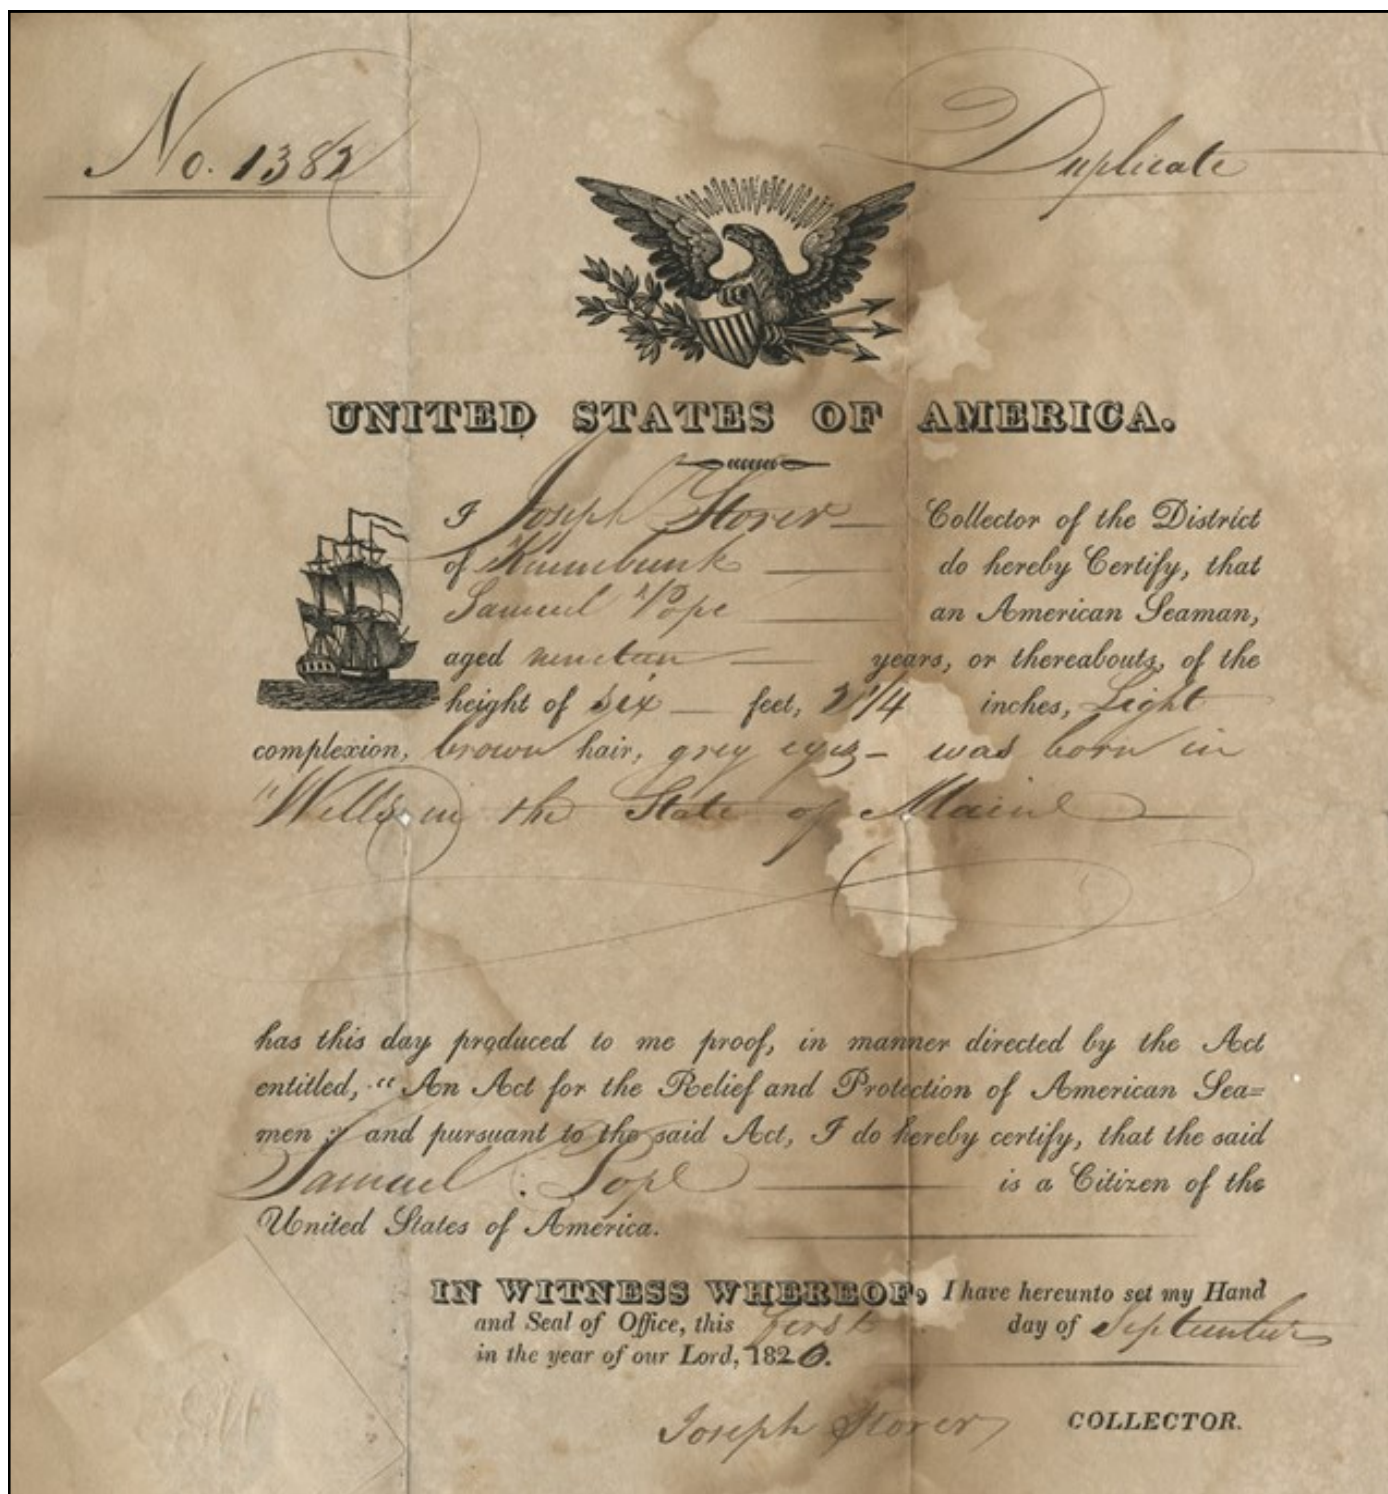 No. 1382
Duplicate
UNITED STATES OF AMERICA.
I Joseph Storer Collector of the District
of Kennebunk do hereby Certify, that
Samuel Pope an American Seaman,
aged nineteen years, or thereabouts, of the
height of six feet, 2 1/4 inches, Light
complexion, brown hair, grey eyes – was born in
Wells in the State of Maine
has this day produced to me proof, in manner directed by the Act
entitled, "An Act for the Relief and Protection of American Sea=
men;" and pursuant to the said Act, I do hereby certify, that the said
Samuel Pope is a Citizen of the
United States of America.
IN WITNESS WHEREOF, I have hereunto set my Hand
and Seal of Office, this first day of September
in the year of our Lord, 1820.
Joseph Storer COLLECTOR.